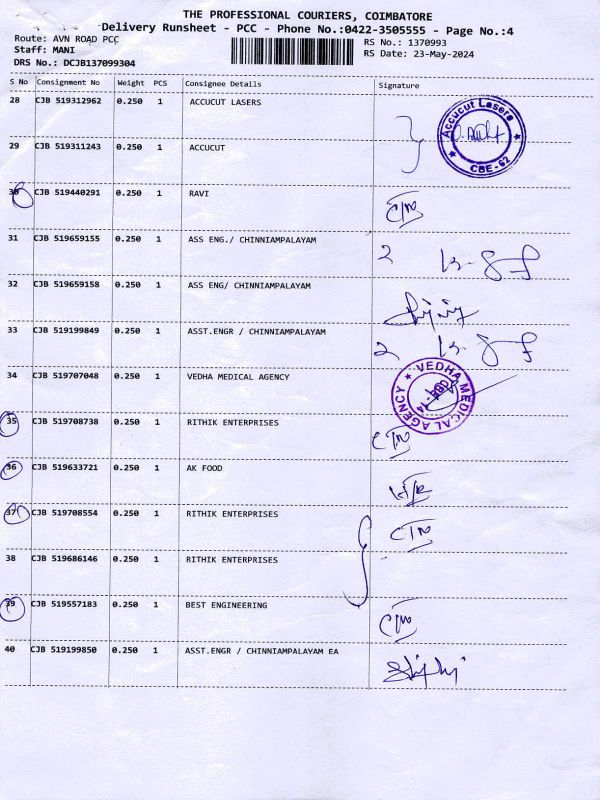 THE PROFESSIONAL COURIERS, COIMBATORE
Delivery Runsheet - PCC - Phone No.:0422-3505555 - Page No.:4
Route: AVN ROAD PCC
RS No.: 1370993
Staff: MANI
RS Date: 23-May-2024
DRS No.: DCJB137099304
S No Consignment No Weight PCS Consignee Details Signature
28 CJB 519312962 0.250 1 ACCUCUT LASERS
Accucut Lasers
CBE-62
29 CJB 519311243 0.250 1 ACCUCUT
30 CJB 519440291 0.250 1 RAVI
31 CJB 519659155 0.250 1 ASS ENG./ CHINNIAMPALAYAM
2
32 CJB 519659158 0.250 1 ASS ENG/ CHINNIAMPALAYAM
33 CJB 519199849 0.250 1 ASST.ENGR / CHINNIAMPALAYAM
2
34 CJB 519707048 0.250 1 VEDHA MEDICAL AGENCY
VEDHA MEDICAL AGENCY
35 CJB 519708738 0.250 1 RITHIK ENTERPRISES
36 CJB 519633721 0.250 1 AK FOOD
37 CJB 519708554 0.250 1 RITHIK ENTERPRISES
38 CJB 519686146 0.250 1 RITHIK ENTERPRISES
39 CJB 519557183 0.250 1 BEST ENGINEERING
40 CJB 519199850 0.250 1 ASST.ENGR / CHINNIAMPALAYAM EA